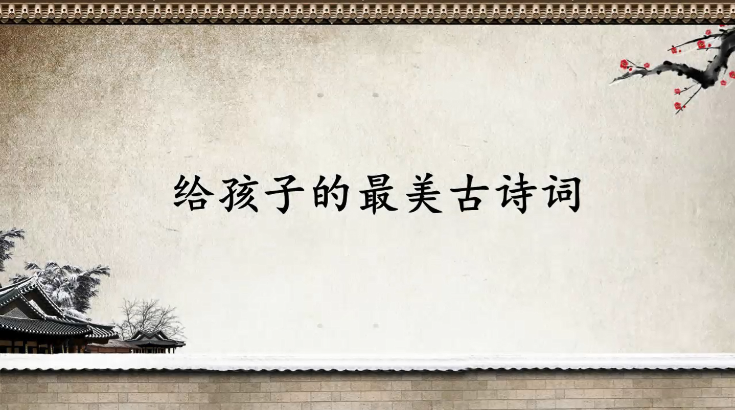 给孩子的最美古诗词